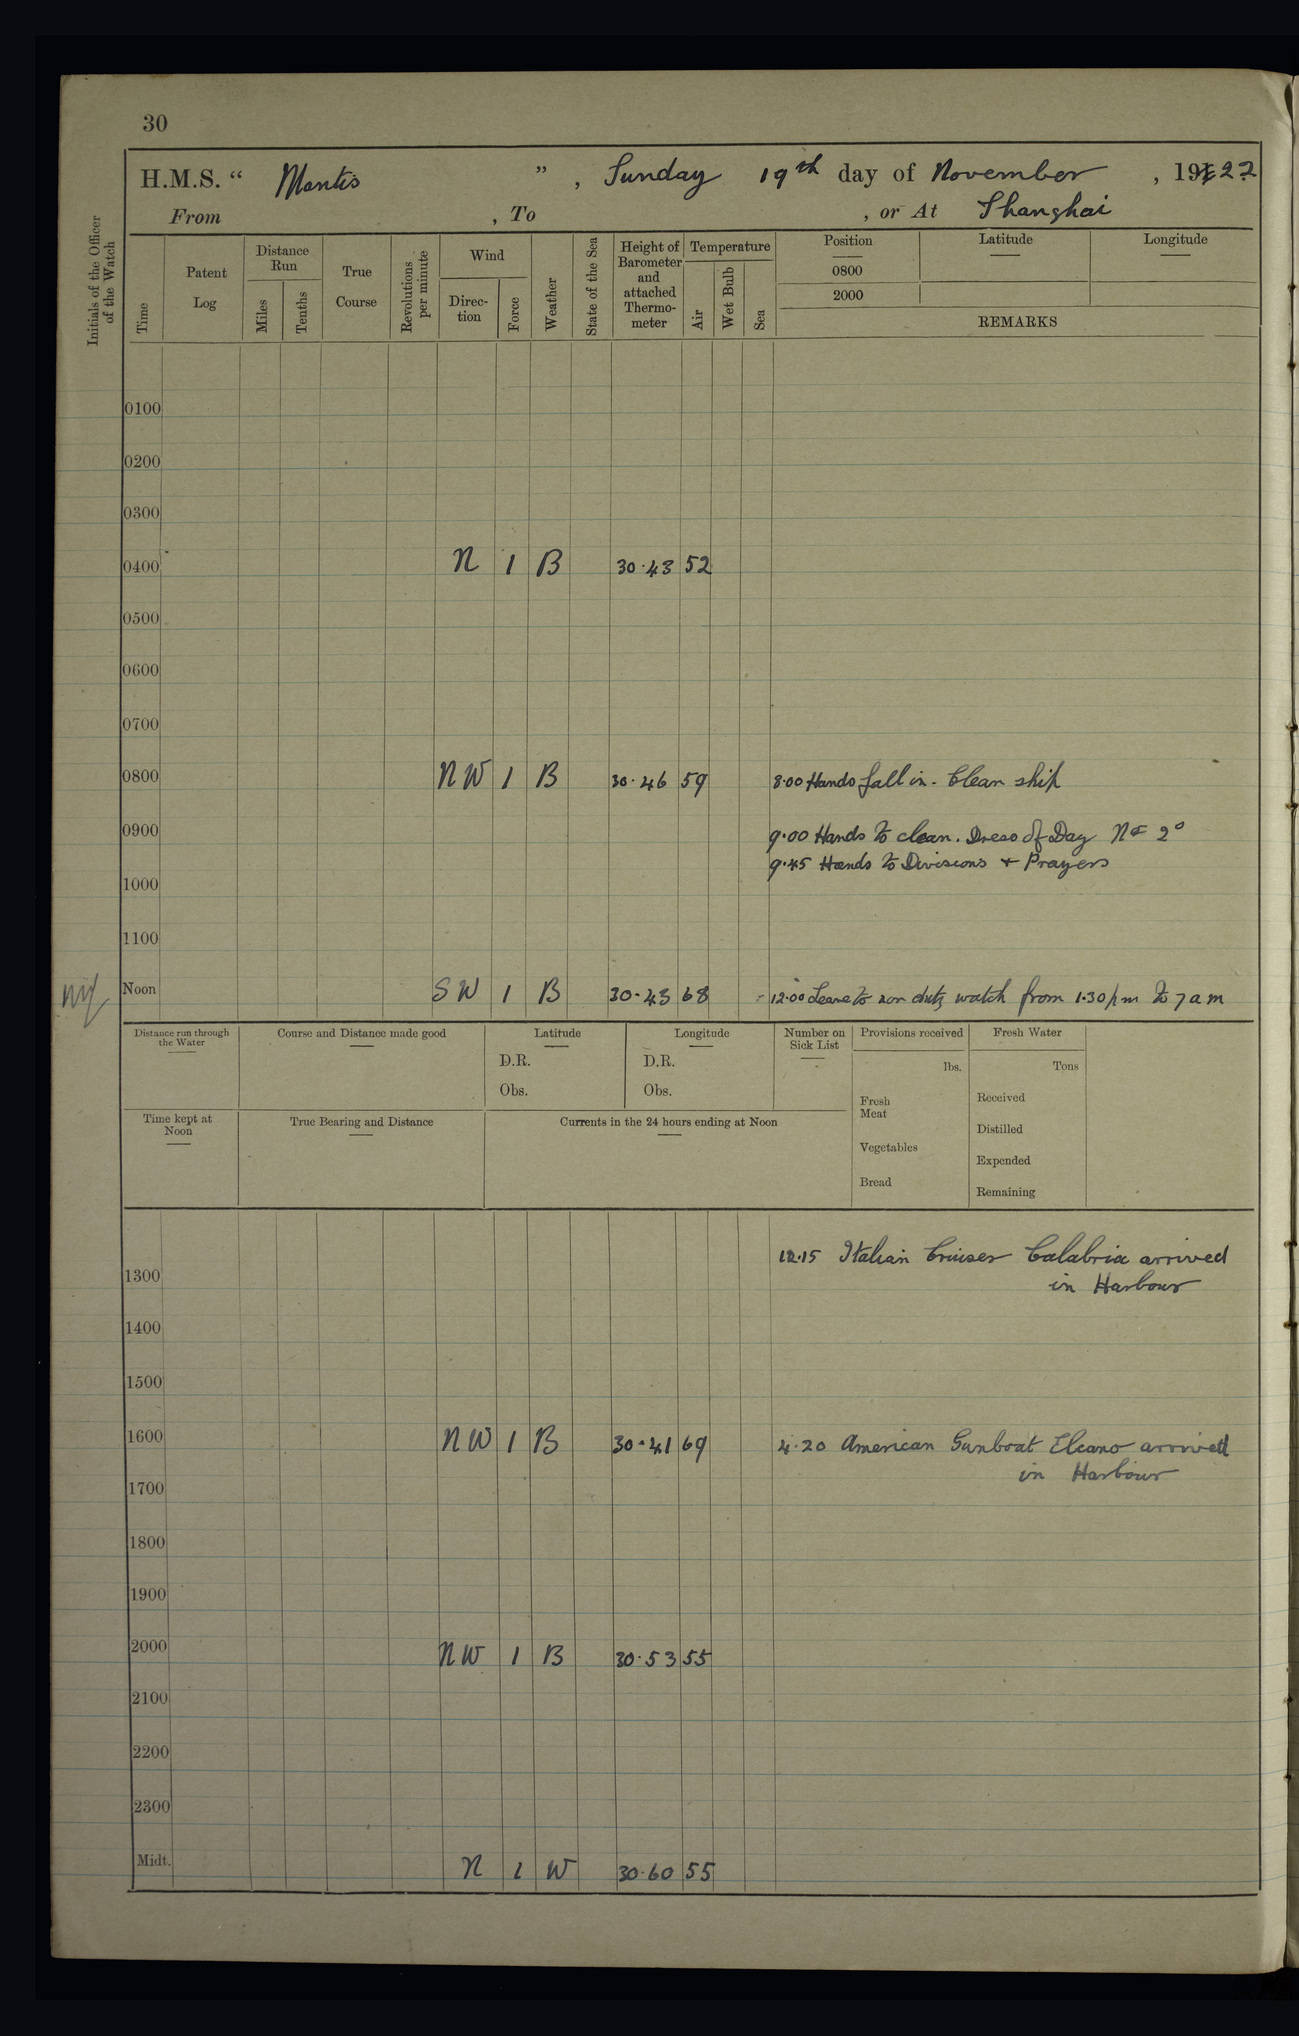 30
H.M.S. “ Mantis ” , Sunday 19th day of November , 1922
From , To , or At Shanghai
Initials of the Officer of the Watch
Time
Patent Log
Distance Run
Miles
Tenths
True Course
Revolutions per minute
Wind
Direc-tion
Force
Weather
State of the Sea
Height of Barometer and attached Thermo-meter
Temperature
Air
Wet Bulb
Sea
Position Latitude Longitude
0800
2000
REMARKS
0100
0200
0300
0400 N 1 B 30.43 52
0500
0600
0700
0800 NW 1 B 30.46 59 8.00 Hands fall in. Clean ship
0900 9.00 Hands to clean. Dress of Day No 2
9.45 Hands to Divisions + Prayers
1000
1100
Noon SW 1 B 30.43 68 12.00 Leave to non duty watch from 1.30 pm to 7 am
Distance run through the Water
Course and Distance made good
Latitude
D.R.
Obs.
Longitude
D.R.
Obs.
Number on Sick List
Provisions received
lbs.
Fresh Meat
Vegetables
Bread
Fresh Water
Tons
Received
Distilled
Expended
Remaining
Time kept at Noon
True Bearing and Distance
Currents in the 24 hours ending at Noon
12.15 Italian Cruiser Calabria arrived
in Harbour
1300
1400
1500
1600 NW 1 B 30.41 69 4.20 American Gunboat Elcano arrived
in Harbour
1700
1800
1900
2000 NW 1 B 30.53 55
2100
2200
2300
Midt. N 1 W 30.60 55